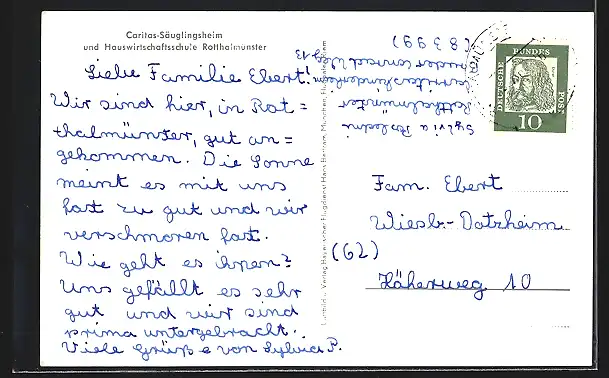 Caritas-Säuglingsheim
und Hauswirtschaftsschule Rotthalmünster
Liebe Familie Ebert!
Wir sind hier, in Rot=
thalmünster, gut an=
gekommen. Die Sonne
meint es mit uns
fast zu gut und wir
verschmoren fast.
Wie geht es ihnen?
Uns gefällt es sehr
gut und wir sind
prima untergebracht.
Viele Grüße von Sylvia P.
Sylvia
Rotthalmünster
(8399)
DEUTSCHE
BUNDES
POST
10
Fam. Ebert
Wiesb.-Dotzheim
(62)
Häherweg 10